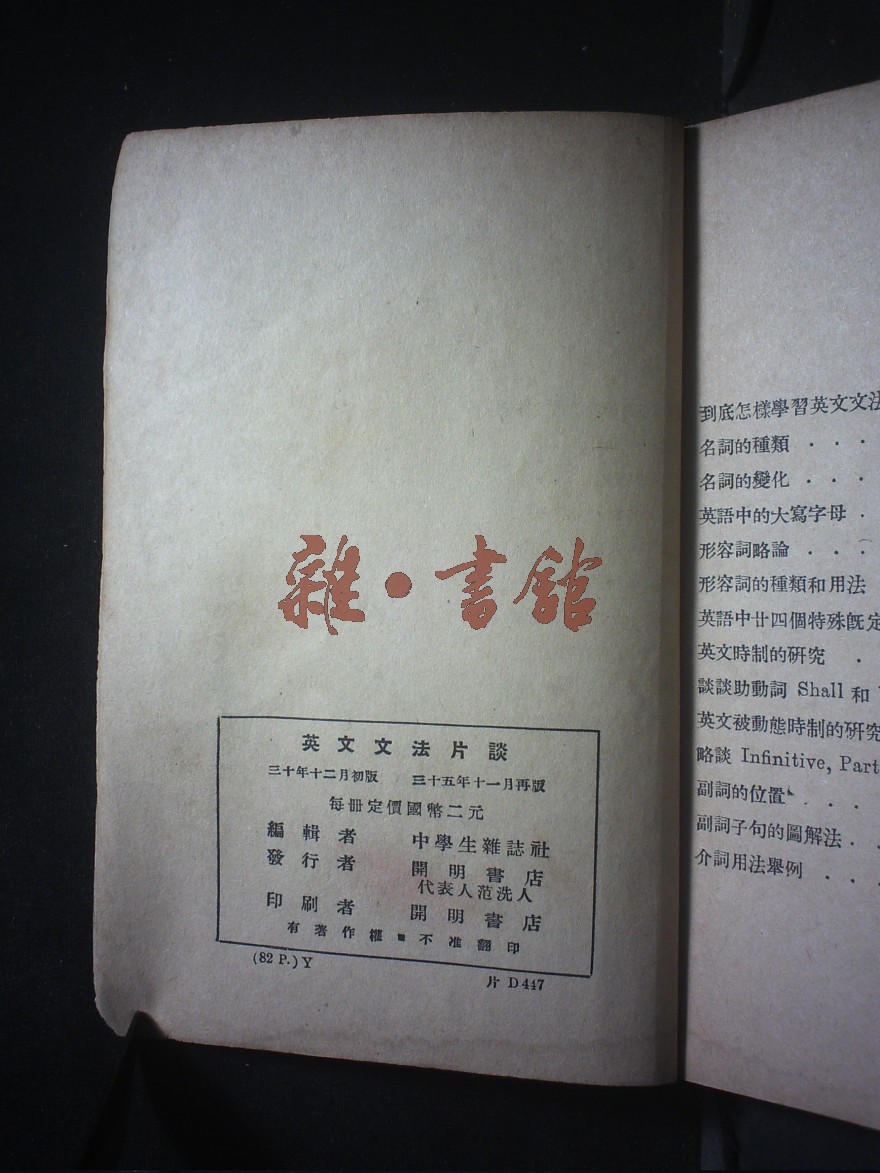 雜·書館
英文文法片談
三十年十二月初版 三十五年十一月再版
每冊定價國幣二元
編輯者 中學生雜誌社
發行者 開明書店
代表人范洗人
印刷者 開明書店
有著作權■不准翻印
(82 P.) Y
片 D 447
到底怎樣學習英文文法
名詞的種類 · · ·
名詞的變化 · · ·
英語中的大寫字母 ·
形容詞略論 · · ·
形容詞的種類和用法
英語中廿四個特殊旣定
英文時制的硏究 ·
談談助動詞 Shall 和
英文被動態時制的硏究
略談 Infinitive, Part
副詞的位置 · · ·
副詞子句的圖解法 · ·
介詞用法舉例 · · ·